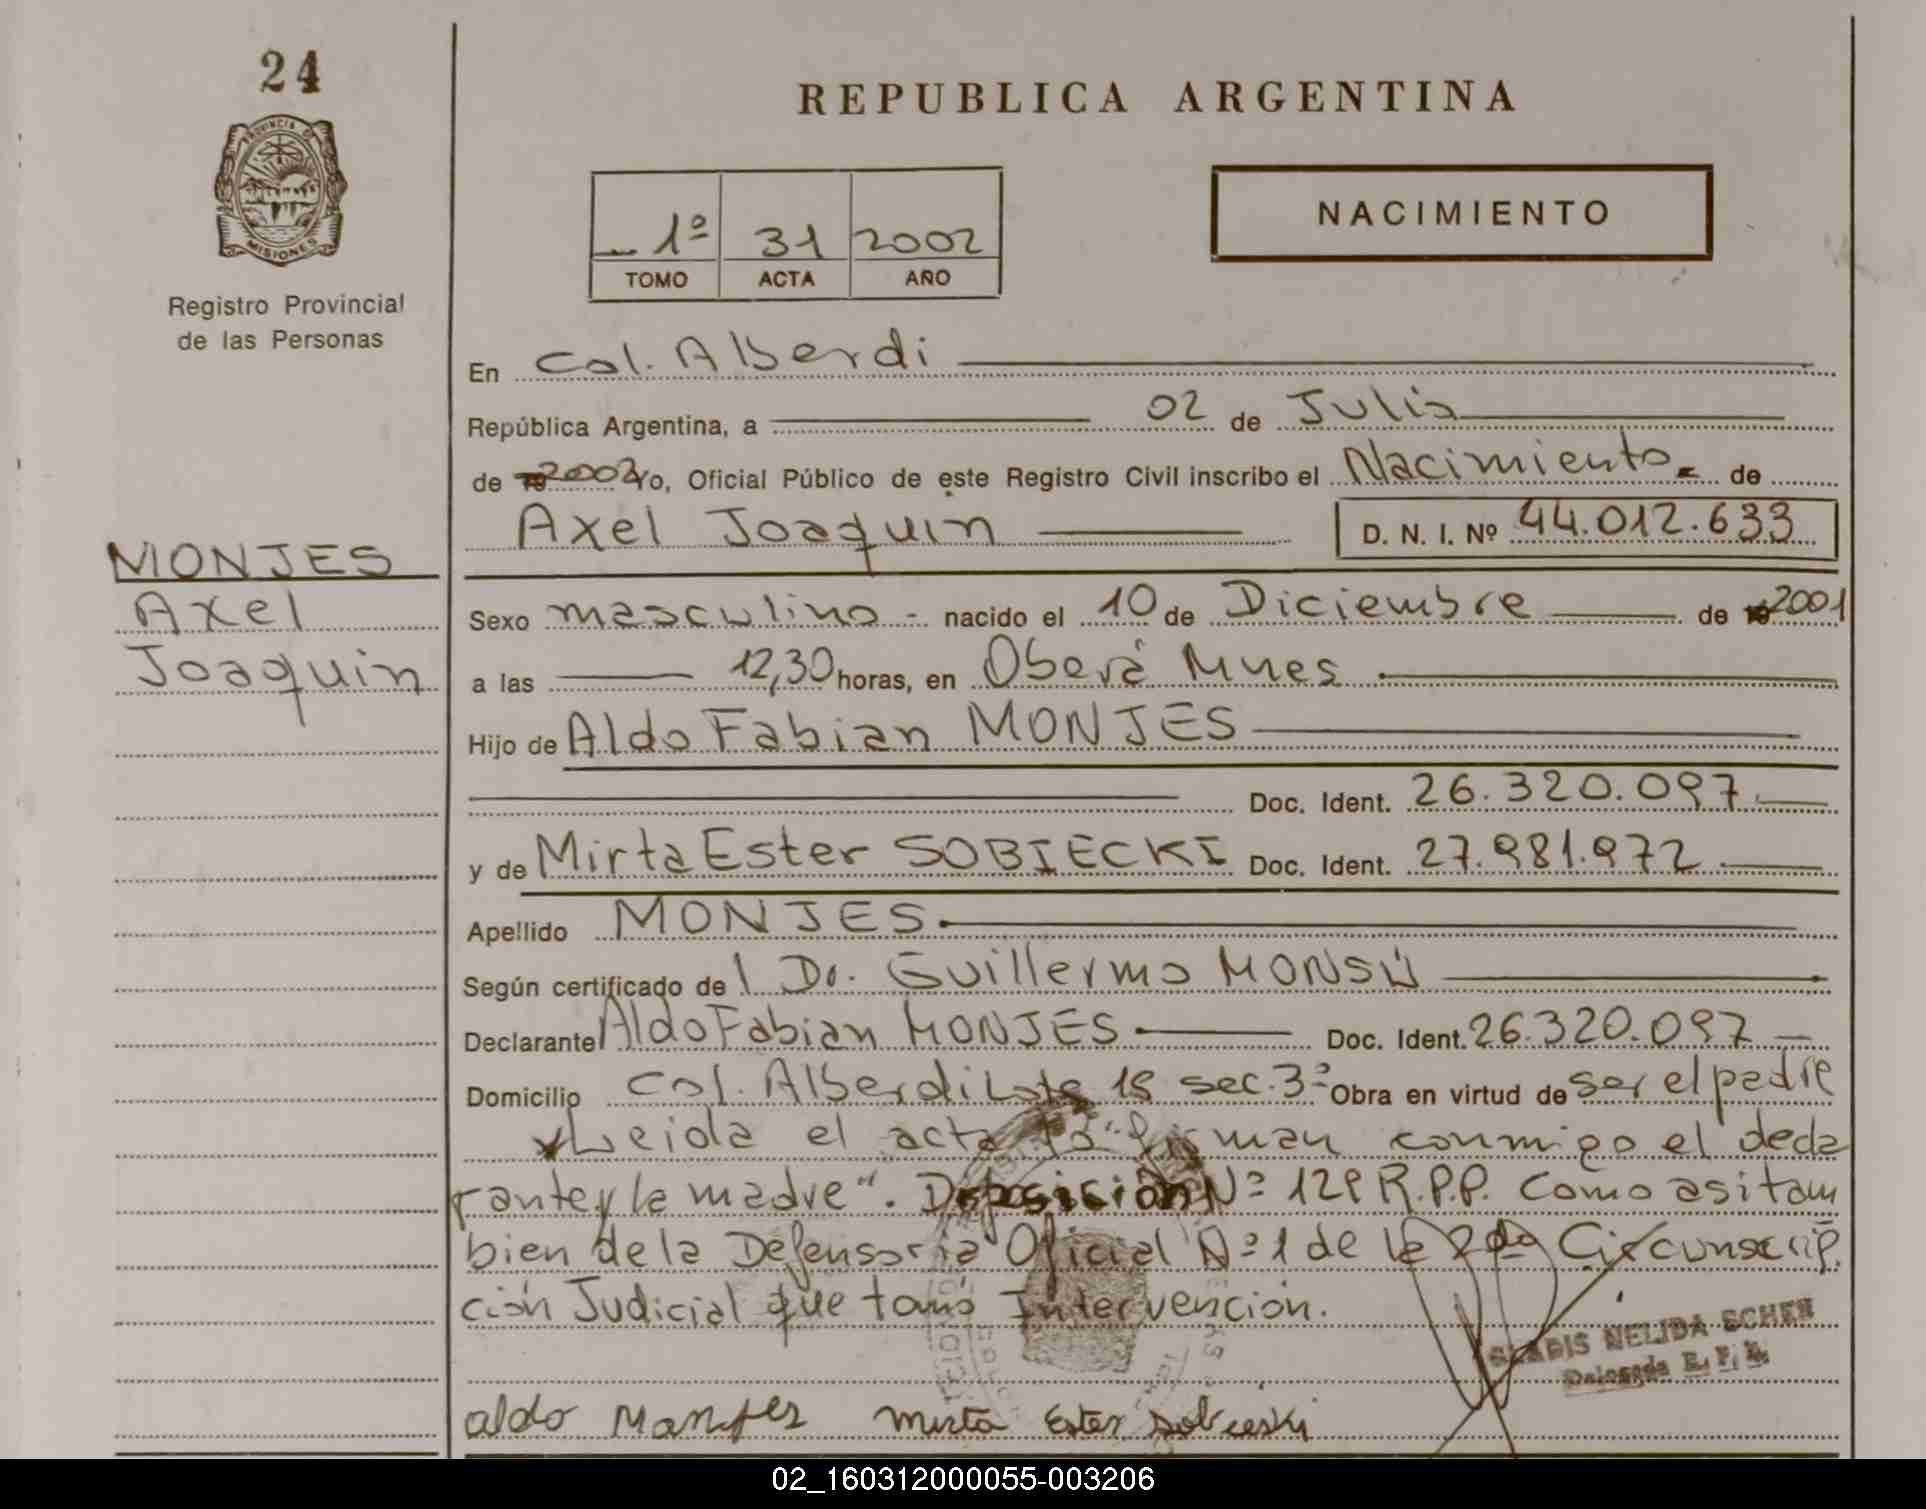 24
PROVINCIA DE
MISIONES
Registro Provincial
de las Personas
REPUBLICA ARGENTINA
1º 31 2002
TOMO ACTA AÑO
NACIMIENTO
En Col. Alberdi
República Argentina, a 02 de Julio
de 2002 Yo, Oficial Público de este Registro Civil inscribo el Nacimiento de
Axel Joaquin D. N. I. Nº 44.012.633
MONJES
Axel
Joaquin
Sexo masculino - nacido el 10 de Diciembre de 2001
a las 12,30 horas, en Oberá Mnes
Hijo de Aldo Fabian MONJES
Doc. Ident. 26.320.097
y de Mirta Ester SOBIECKI Doc. Ident. 27.981.972
Apellido MONJES
Según certificado de l Dr. Guillermo MONSÚ
Declarante Aldo Fabian MONJES Doc. Ident. 26.320.097
Domicilio Col. Alberdi Lote 15 sec. 3ª Obra en virtud de ser el padre
Leida el acta la "firman conmigo el decla
rante y la madre". Disposición Nº 129 R.P.P. Como asi tam
bien de la Defensoria Oficial Nº 1 de la 2da Circunscrip
ción Judicial que tomó Intervención.
GLADIS NELIDA SCHER
Delegada R. P. P.
aldo Monjes Mirta Ester Sobieski
02_160312000055-003206